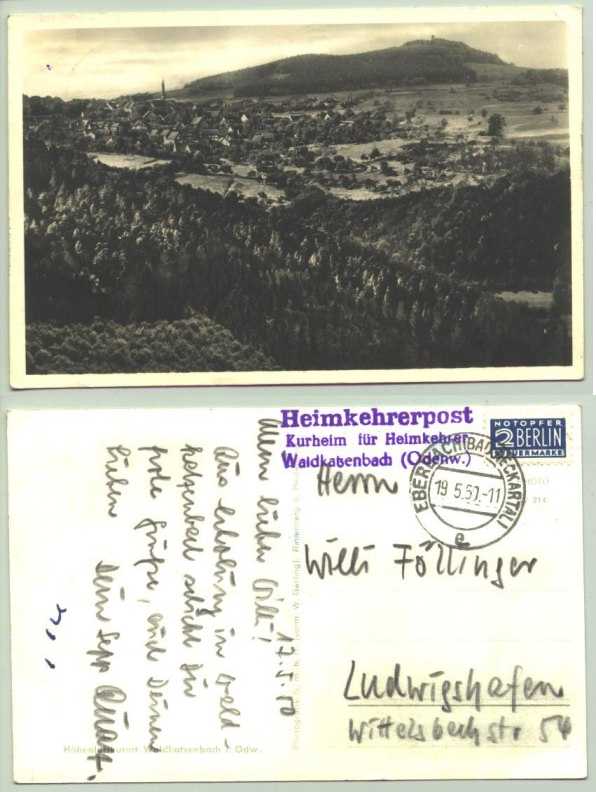 Heimkehrerpost
Kurheim für Heimkehrer
Waldkatzenbach (Odenw.)
NOTOPFER
2 BERLIN
STEUERMARKE
EBERBACH (BADEN) NECKARTAL
19.5.50.-11
e
Herrn
Willi Föllinger
Ludwigshafen
Wittelsbachstr 54
17.5.50
Mein lieber Willi!
Aus Erholung in Wald-
katzenbach schickt Dir
frohe Grüße, und Deinen
Lieben Dein Sepp
Höhenluftkurort Waldkatzenbach i. Odw.